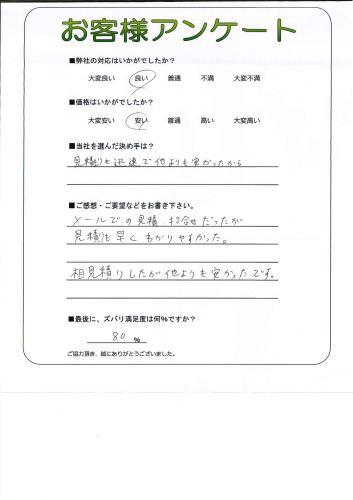 お客様アンケート
■弊社の対応はいかがでしたか?
大変良い 良い 普通 不満 大変不満
■価格はいかがでしたか?
大変安い 安い 普通 高い 大変高い
■当社を選んだ決め手は?
見積りも迅速で他よりも安かったから
■ご感想・ご要望などをお書き下さい。
メールでの見積、打合せだったが
見積りも早くわかりやすかった。
相見積りしたが他よりも安かったです。
■最後に、ズバリ満足度は何%ですか?
80 %
ご協力頂き、誠にありがとうございました。